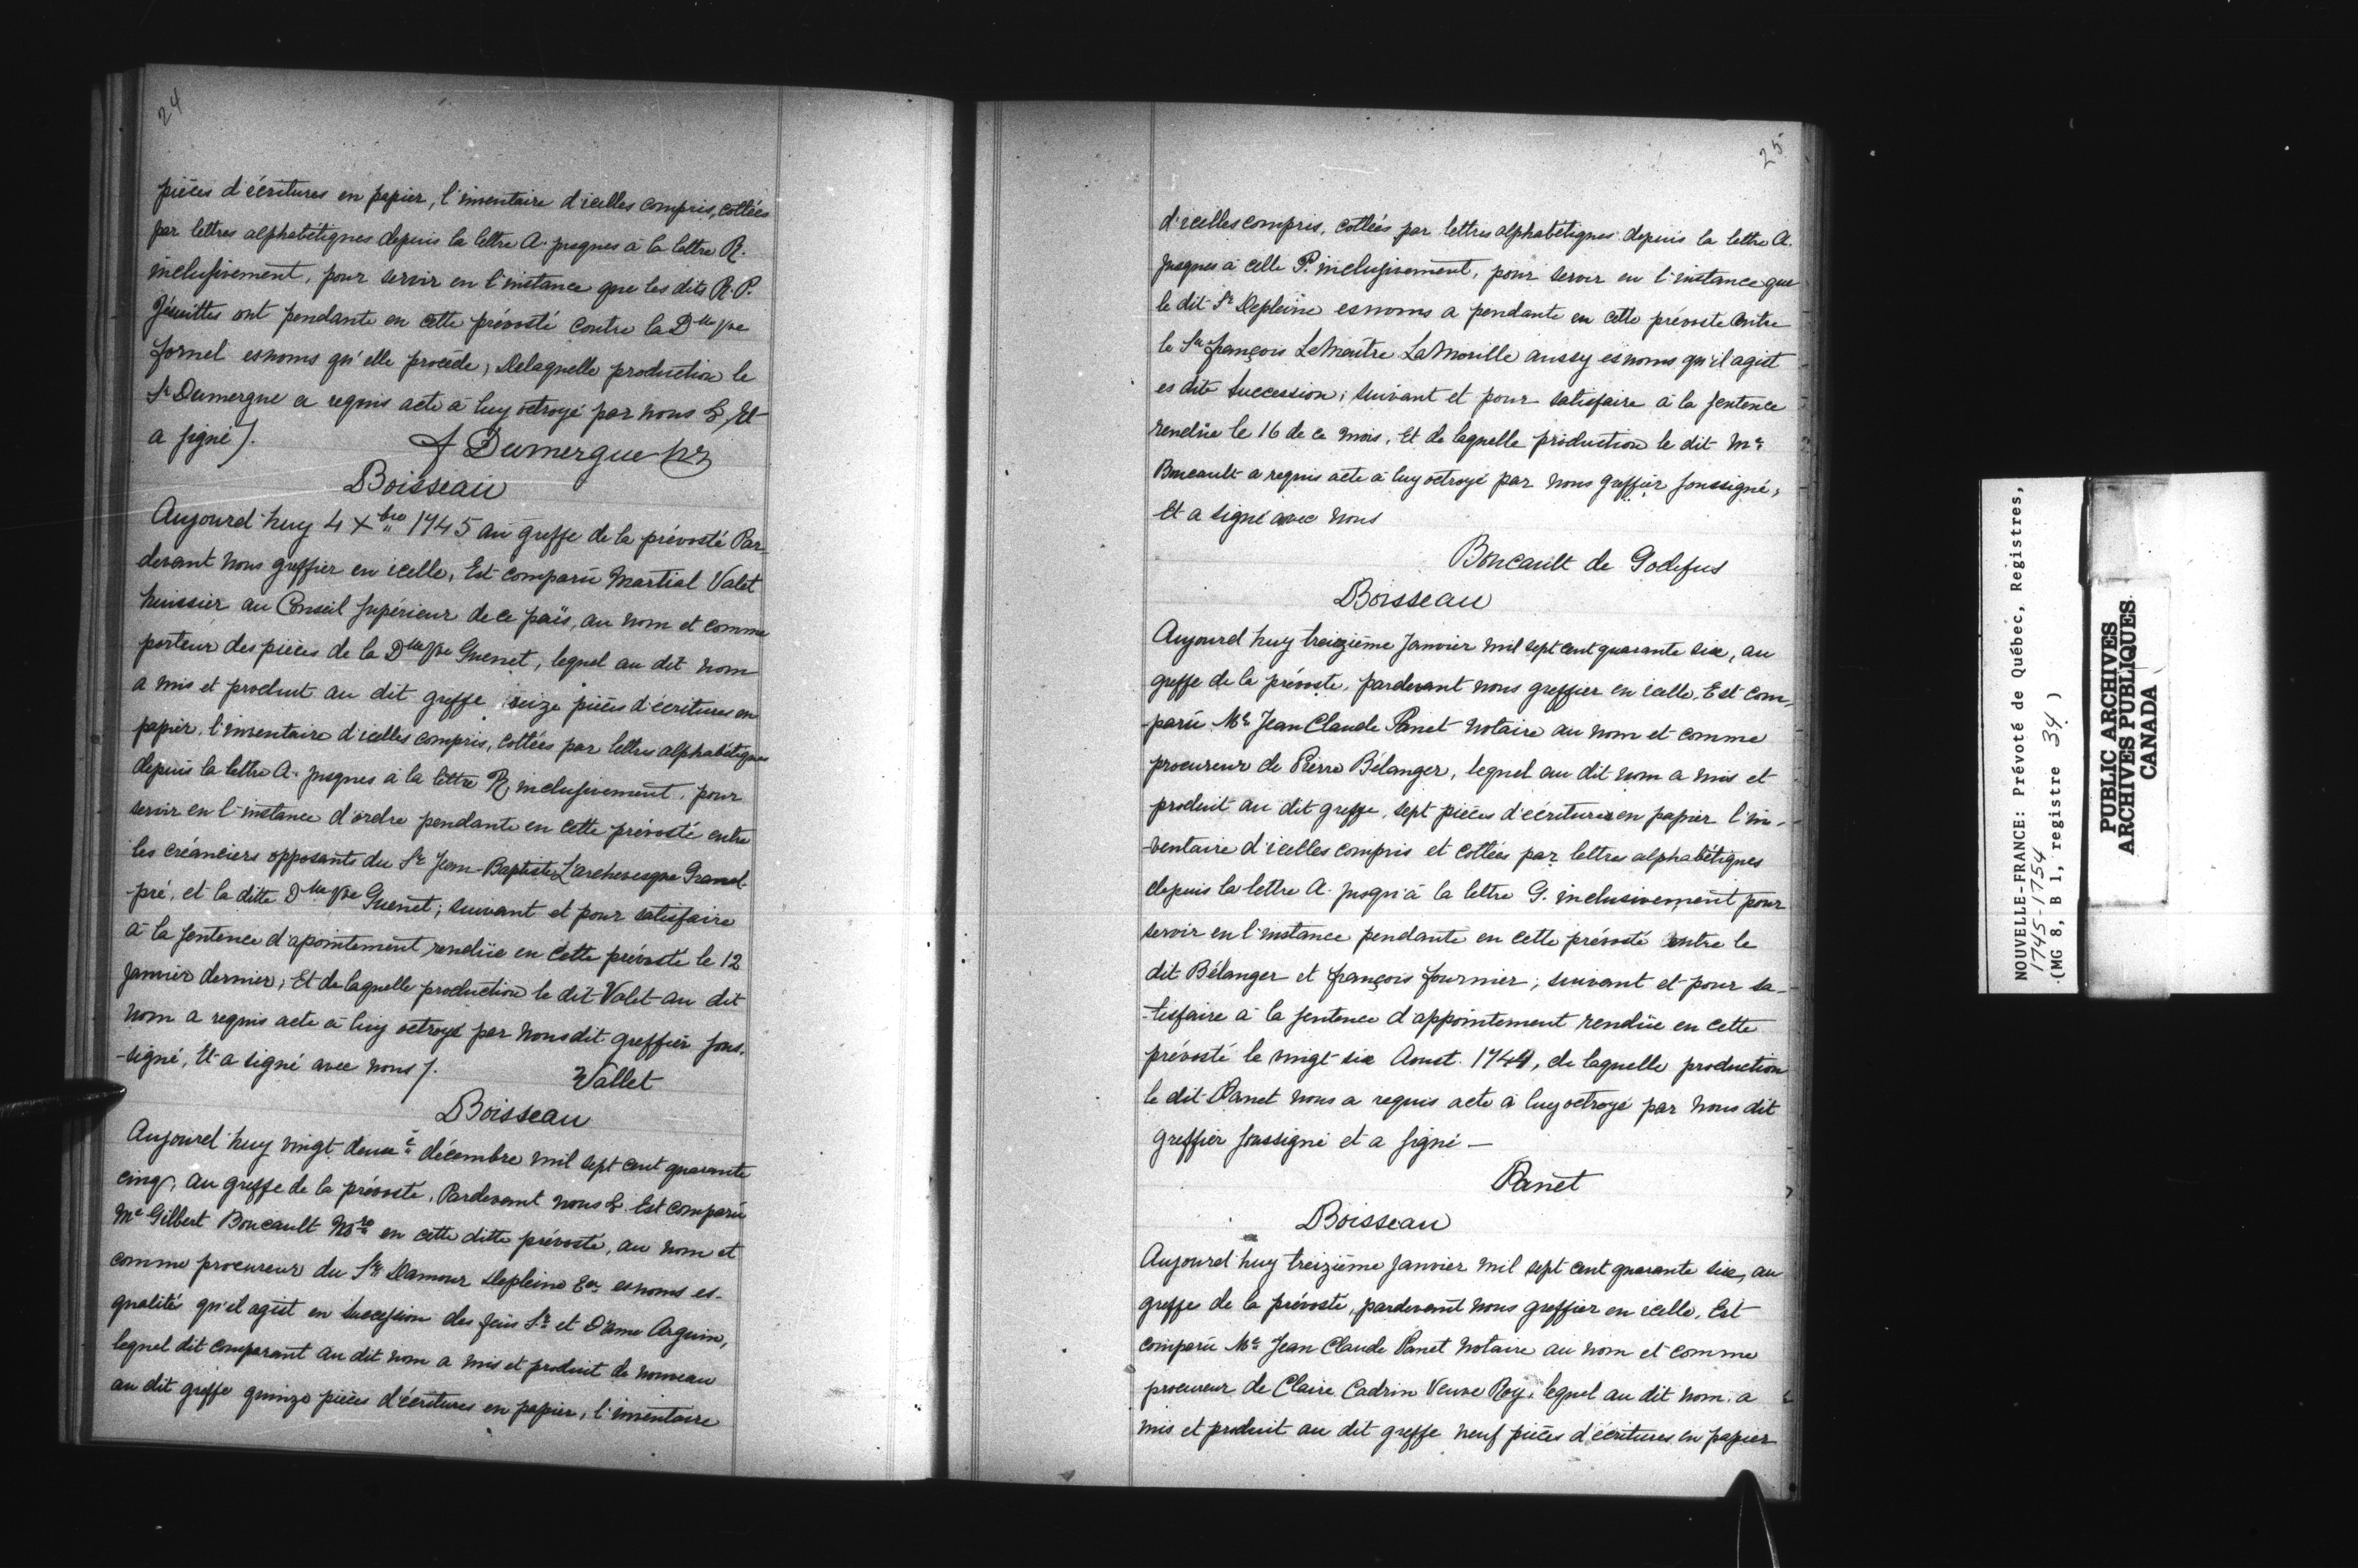 24
pièces d'écritures en papier, l'inventaire d'icelles compris, cottées
par lettres alphabétiques depuis la lettre A. jusques à la lettre R.
inclusivement, pour servir en l'instance que les dits R. P.
Jésuittes ont pendante en cette prévosté contre la Dlle Vve
fornel esnoms qu'elle procède, Delaquelle production le
Sr Dumergue a requis acte à luy octroyé par nous &, Et
a signé /.
f Dumergue
Boisseau
Aujourd'huy 4 Xbre 1745 au greffe de la prévosté Par-
devant nous greffier en icelle, Est comparü Martial Valet
huissier au Conseil supérieur de ce païs, au nom et comme
porteur des pièces de la Dlle Vve Guenet, lequel au dit nom
a mis et produit au dit greffe seize pièces d'écritures en
papier, l'inventaire d'icelles compris, cottées par lettres alphabétiques
depuis la lettre A. jusques à la lettre R, inclusivement, pour
servir en l'instance d'ordre pendante en cette prévosté entre
les créanciers opposants du Sr Jean-Baptiste Larchevesque Grand-
-pré, et la ditte Dlle Vve Guenet; suivant et pour satisfaire
à la sentence d'apointement rendüe en cette prévosté le 12
janvier dernier; Et de laquelle production le dit Valet au dit
nom a requis acte à luy octroyé par nous dit greffier sous-
-signé, Et a signé avec nous /.
Vallet
Boisseau
Aujourd'huy vingt deuxe décembre mil sept cent quarante
cinq, au greffe de la prévosté, Pardevant nous & Est comparü
Me Gilbert Boucault Nore en cette ditte prévosté, au nom et
comme procureur du Sr Damour Depleine Er esnoms es-
qualité qu'il agist en succession des feüs Sr et Dame Arguin,
lequel dit comparant au dit nom a mis et produit de nouveau
au dit greffe quinze pièces d'écritures en papier, l'inventaire
25
d'icelles compris, cottées par lettres alphabétiques depuis la lettre A.
jusques à celle P. inclusivement, pour servir en l'instance que
le dit Sr Depleine esnoms a pendante en cette prévosté Contre
le Sr françois LeMaitre LaMorille aussy esnoms qu'il agist
es dite succession; suivant et pour satisfaire à la sentence
rendüe le 16 de ce mois, Et de laquelle production le dit Me
Boucault a requis acte à luy octroyé par nous greffier soussigné,
Et a signé avec nous
Boucault de Godefus
Boisseau
Aujourd'huy treizième Janvier mil sept cent quarante six, au
greffe de la prévosté, pardevant nous greffier en icelle, Est com-
-parü Me Jean Claude Panet notaire au nom et comme
procureur de Pierre Bélanger, lequel au dit nom a mis et
produit au dit greffe, sept pièces d'écritures en papier l'in-
-ventaire d'icelles compris et cottées par lettres alphabétiques
depuis la lettre A. jusqu'à la lettre G. inclusivement pour
servir en l'instance pendante en cette prévosté entre le
dit Bélanger et françois fournier; suivant et pour sa-
-tisfaire à la sentence d'appointement rendüe en cette
prévosté le vingt-six Aoust 1744, de laquelle production
le dit Panet nous a requis acte à luy octroyé par nous dit
greffier soussigné et a signé —
Panet
Boisseau
Aujourd'huy treizième janvier mil sept cent quarante six, au
greffe de la prévosté, pardevant nous greffier en icelle, Est
comparü Me Jean Claude Panet notaire au nom et comme
procureur de Claire Cadrin Veuve Roy, lequel au dit nom a
mis et produit au dit greffe neuf pièces d'écritures en papier
NOUVELLE-FRANCE: Prévoté de Québec, Registres,
1745-1754
(MG 8, B 1, registre 34)
PUBLIC ARCHIVES
ARCHIVES PUBLIQUES
CANADA